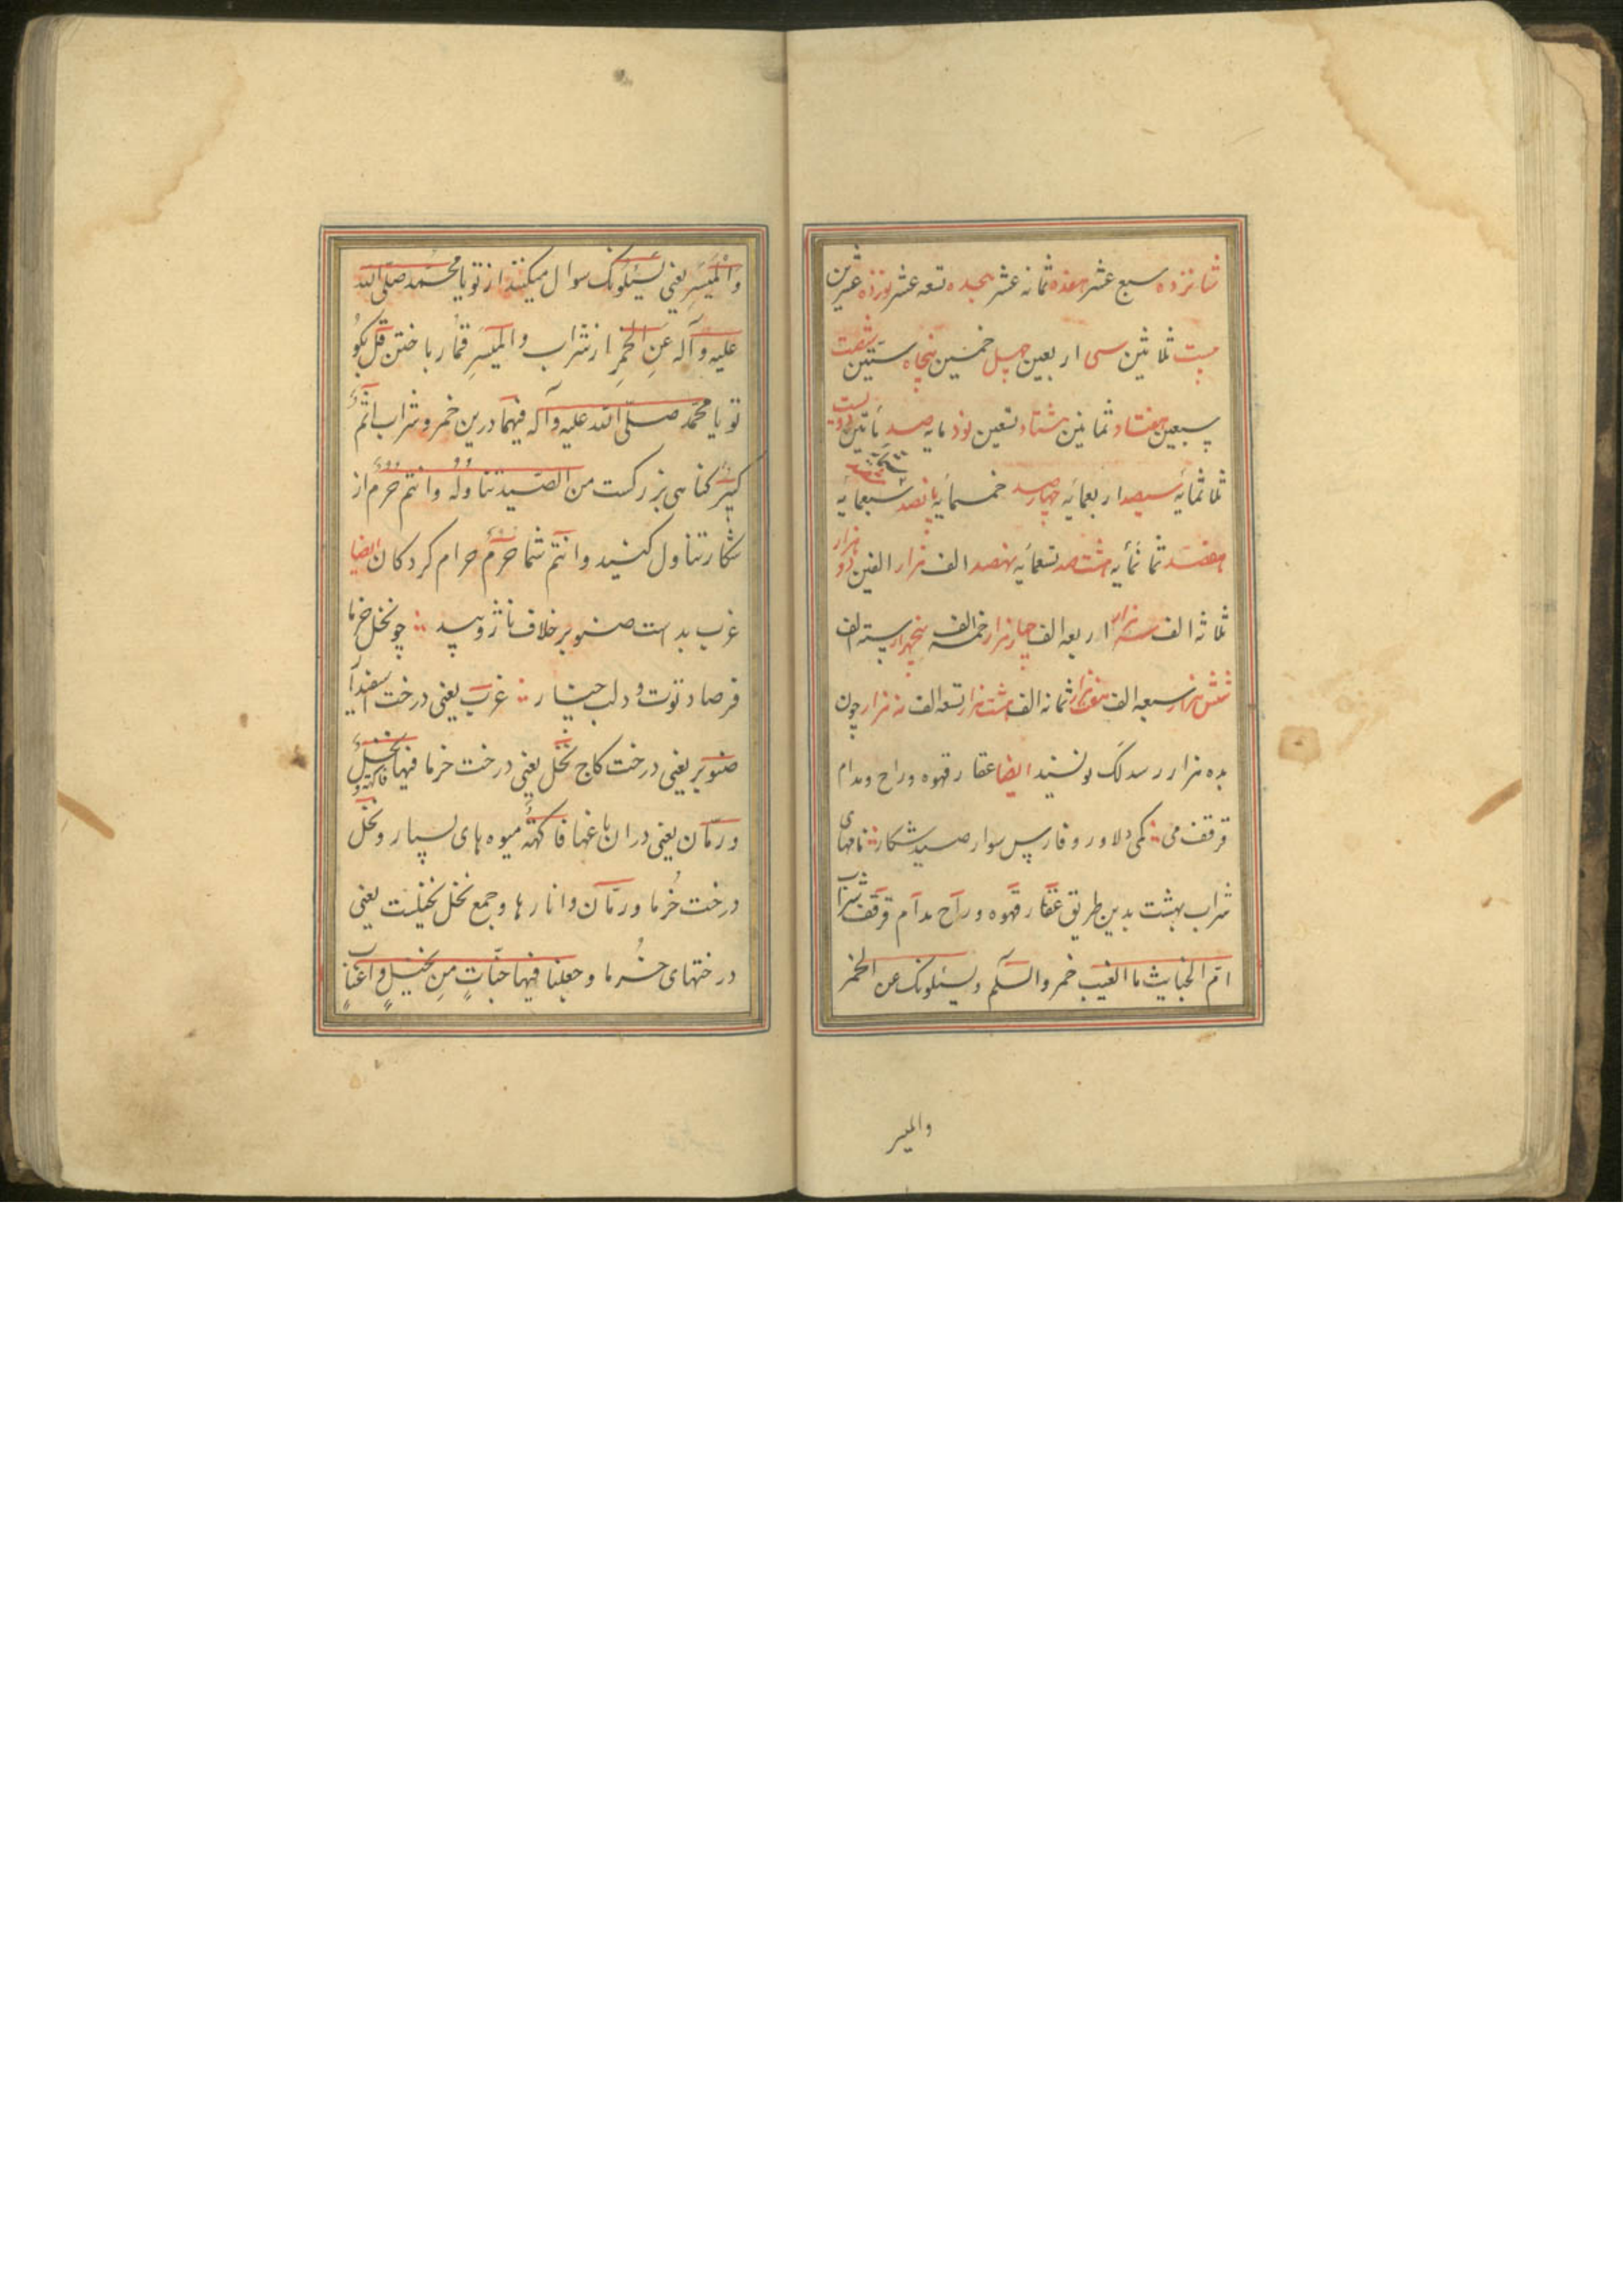 شانزده سبع عشر هفده ثمانه عشر هجده تسعه عشر نوزده عشرین
بیست ثلاثین سی اربعین چهل خمسین پنجاه ستین شصت
سبعین هفتاد ثمانین هشتاد تسعین نود مایه صد مأتین دویست
ثلاثمایه سیصد اربعمایه چهارصد خمسمایه پانصد سبعمایه
هفتصد ثمانمأیه هشتصد تسعمایه نهصد الف هزار الفین دو هزار
ثلاثه الف سه هزار اربعه الف چهار هزار خمسه الف پنجهزار سته الف
شش هزار سبعه الف هفت هزار ثمانه الف هشت هزار تسعه الف نه هزار چون
بده هزار رسد لک نویسند ایضا عقار قهوه و راح و مدام
قرقف می کمی دلاور و فارس سوار صید شکار نامهای
شراب بهشت بدین طریق عقار قهوه و راح مدام قرقف شراب
ام الخبایث ما الغیب خمر والسلم و یسئلونک عن الخمر
والمیسر
والمیسر یعنی یسئلونک سوال میکنند از تو یا محمد صلی الله
علیه وآله عن الخمر از شراب والمیسر قمار باختن قل بگو
تو یا محمد صلی الله علیه وآله فیهما درین خمر و شراب اثم
کبیر گناهی بزرگست من الصید تناوله وانتم حرم از
شکار تناول کنید وانتم شما حرم حرام کردگان ایضا
غرب بد است صنوبر خلاف ناژ و بید چو نخل خرما
فرصاد توت و دلب چنار غرب یعنی درخت اسفیدار
صنوبر یعنی درخت کاج نخل یعنی درخت خرما فیها نخیل فاکهة و
ورمان یعنی دران باغها فاکهة میوه های بسیار و نخل
درخت خرما ورمان و انارها و جمع نخل نخیلست یعنی
درختهای خرما وجعلنا فیها جنات من نخیل واعناب